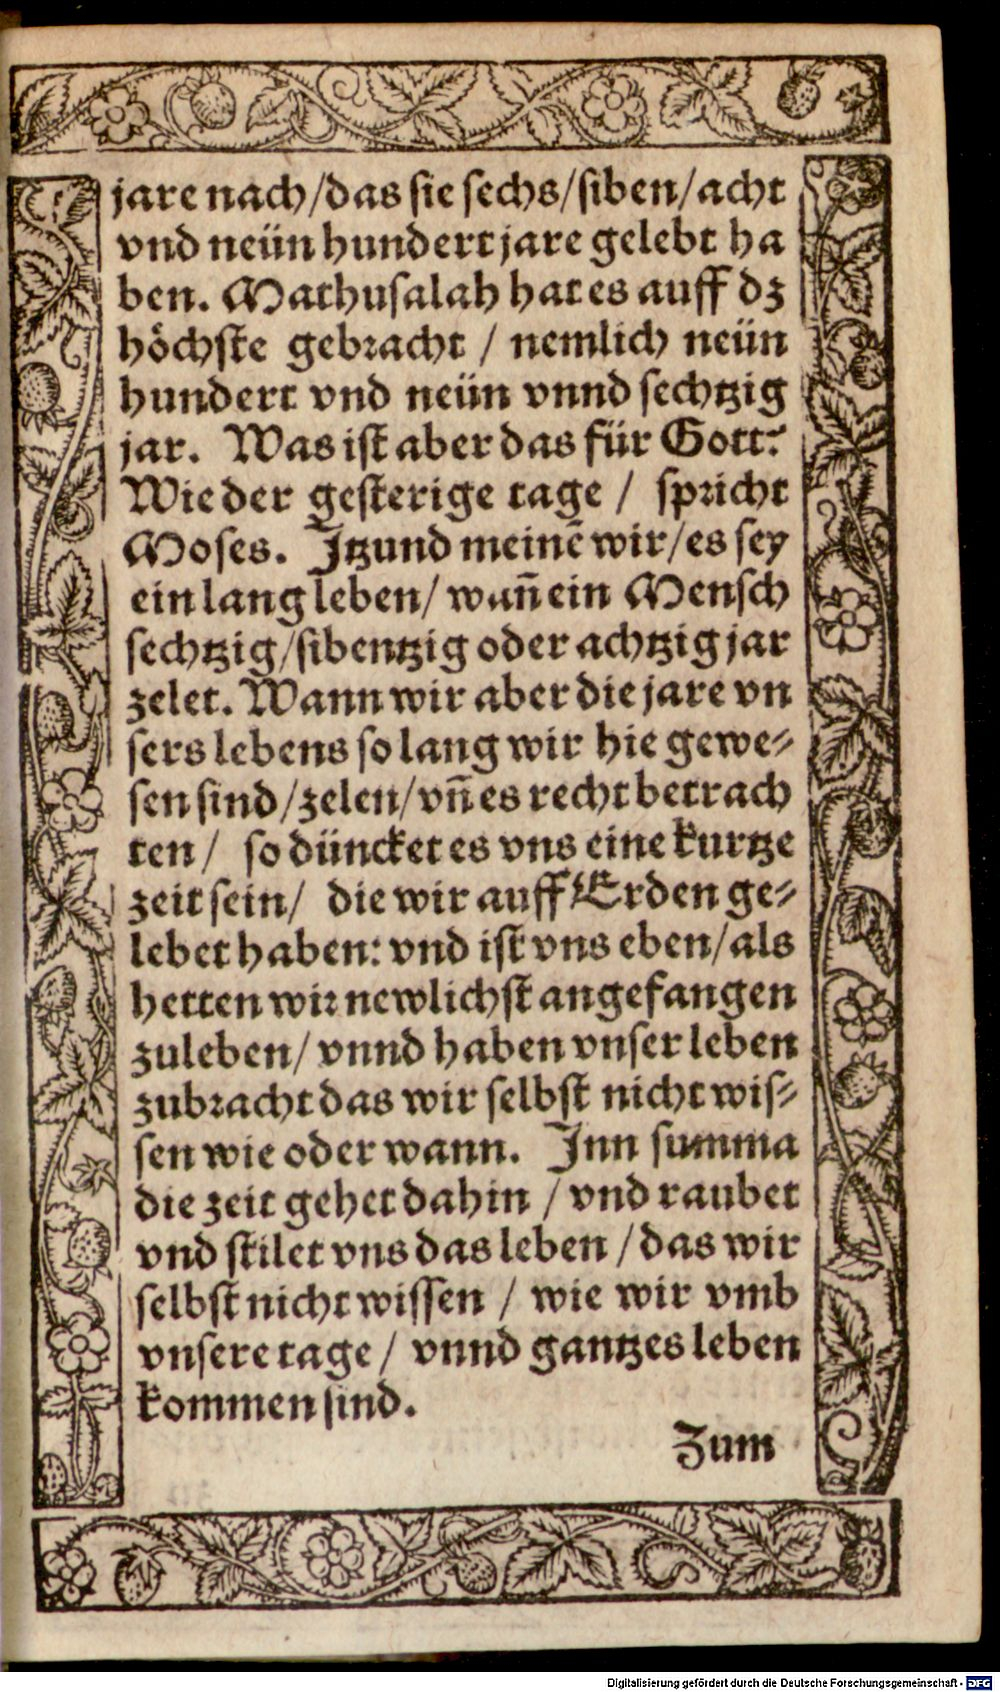 jare nach/das sie sechs/siben/acht
vnd neün hundert jare gelebt ha
ben. Mathusalah hat es auff dz
höchste gebracht / nemlich neün
hundert vnd neün vnnd sechtzig
jar. Was ist aber das für Gott?
Wie der gesterige tage / spricht
Moses. Itzund meinẽ wir/es sey
ein lang leben/ wañ ein Mensch
sechtzig/sibentzig oder achtzig jar
zelet. Wann wir aber die jare vn
sers lebens so lang wir hie gewe-
sen sind/zelen/vñ es recht betrach
ten/ so düncket es vns eine kurtze
zeit sein/ die wir auff Erden ge-
lebet haben: vnd ist vns eben/als
hetten wir newlichst angefangen
zuleben/ vnnd haben vnser leben
zubracht das wir selbst nicht wis-
sen wie oder wann. Inn summa
die zeit gehet dahin / vnd raubet
vnd stilet vns das leben /das wir
selbst nicht wissen / wie wir vmb
vnsere tage/ vnnd gantzes leben
kommen sind.
Zum
Digitalisierung gefördert durch die Deutsche Forschungsgemeinschaft - DFG